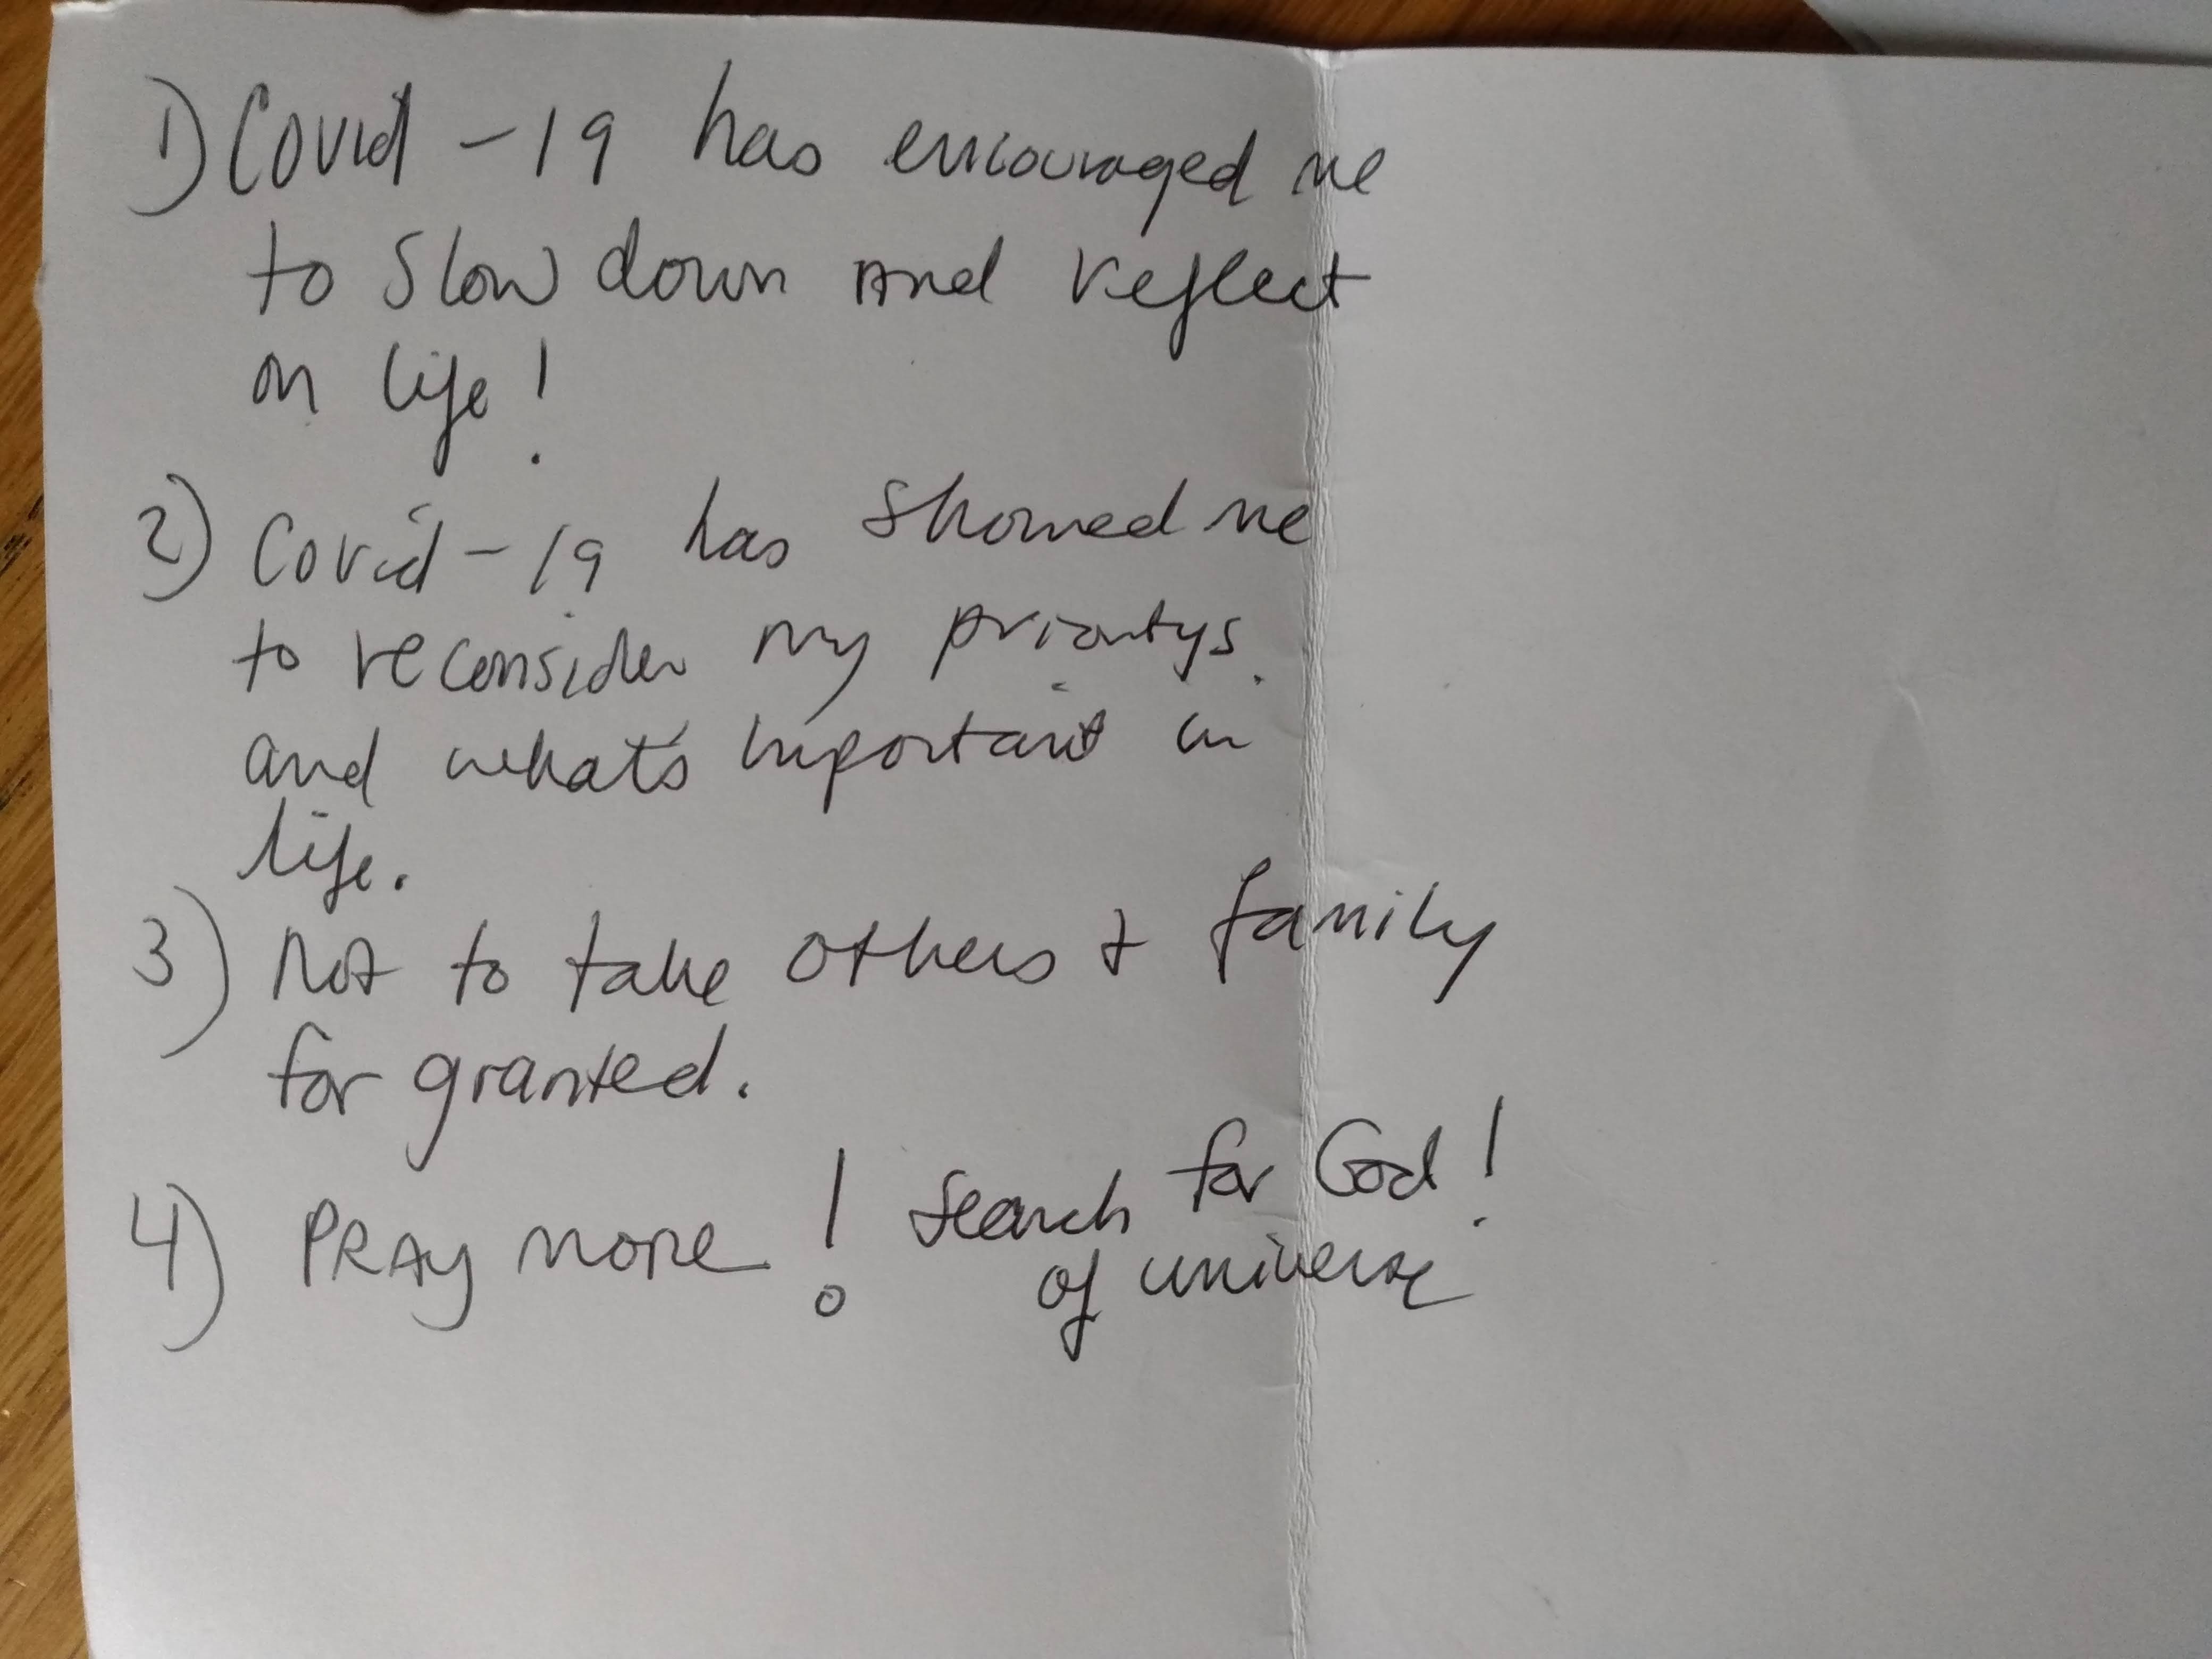 1) Covid-19 has encouraged me
to slow down and reflect
on life!
2) Covid-19 has showed me
to reconsider my prioritys.
and what's important in
life.
3) Not to take others & family
for granted.
4) PRAY MORE! Search for God!
of universe